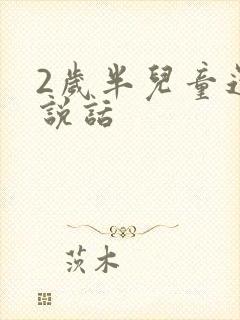 2歲半兒童還
說話
茨木